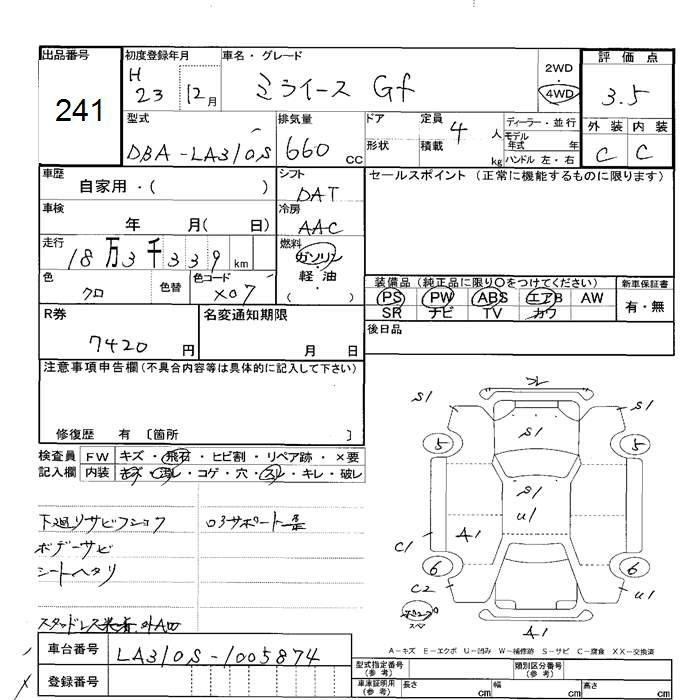 出品番号 初度登録年月 車名・グレード 評価点
241 H 23 12月 ミライース Gf 2WD 4WD 3.5
型式 排気量 ドア 定員 ディーラー・並行 外装 内装
DBA-LA310S 660 CC 形状 積載 4 人 kg モデル年式 年 ハンドル 左・右 C C
車歴 シフト セールスポイント (正常に機能するものに限ります)
自家用・( ) DAT
車検 冷房
年 月( 日) AAC
走行 燃料
18万3千339km ガソリン・軽油
( )
色 クロ 色替 色コード X07
装備品 (純正品に限り○をつけてください) 新車保証書
PS PW ABS エアB AW 有・無
SR ナビ TV カワ
R券 名変通知期限 後日品
7420 円 月 日
注意事項申告欄(不具合内容等は具体的に記入して下さい)
修復歴 有 〔箇所 〕
検査員 FW キズ・飛石・ヒビ割・リペア跡・×要
記入欄 内装 キズ・汚レ・コゲ・穴・スレ・キレ・破レ
下廻リサビフショク
ロ3サポート歪
ボデーサビ
シートヘタリ
スタッドレス
車台番号 LA310S-1005874
登録番号
S1 S1
5 S1 5
S1
U1
A1
C1
6 6
C2
スペア
A1
A-キズ E-エクボ U-凹み W-補修跡 S-サビ C-腐食 XX-交換済
型式指定番号(参考) 類別区分番号(参考)
車庫証明用(参考) 長さ cm 幅 cm 高さ cm